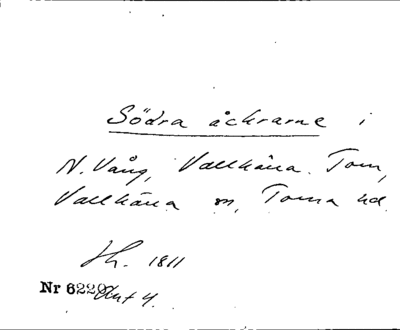 Södra åkrarne i
N. Vång, Vallkära. Tom,
Vallkära sn, Torna hd.
Jh. 1811
Nr 6229 Akt 4.